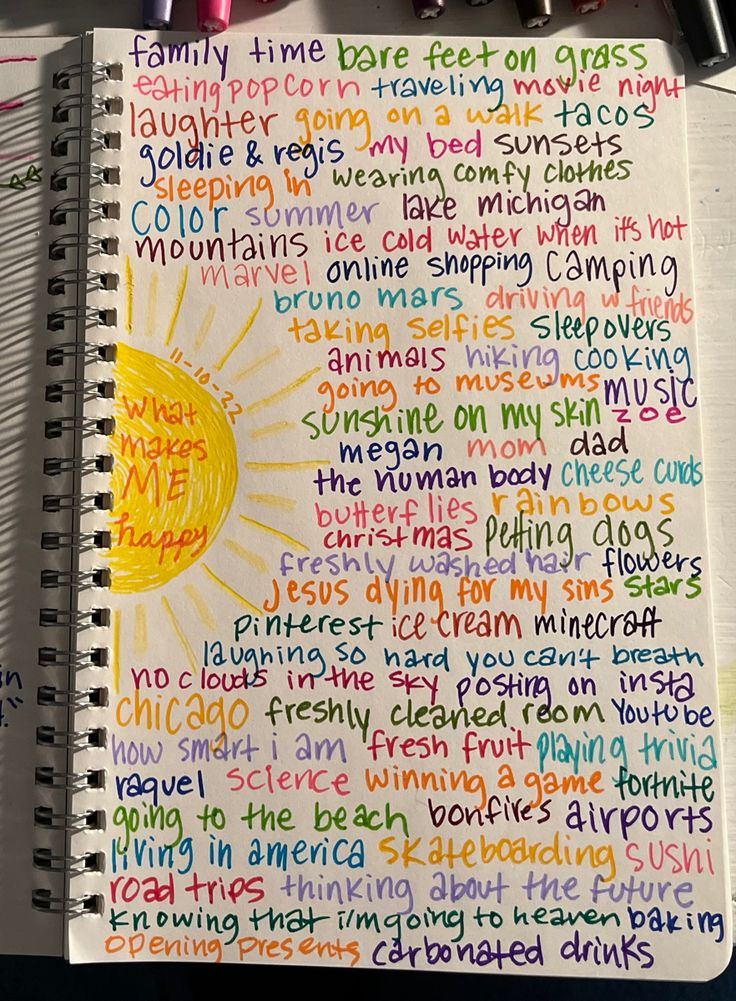 family time bare feet on grass
eating popcorn traveling movie night
laughter going on a walk tacos
goldie & regis my bed sunsets
sleeping in wearing comfy clothes
color summer lake michigan
mountains ice cold water when it's hot
marvel online shopping camping
bruno mars driving w friends
taking selfies sleepovers
animals hiking cooking
going to museums music
sunshine on my skin zoe
megan mom dad
the human body cheese curds
butterflies rainbows
christmas petting dogs
freshly washed hair flowers
jesus dying for my sins stars
pinterest ice cream minecraft
laughing so hard you can't breath
no clouds in the sky posting on insta
chicago freshly cleaned room youtube
how smart i am fresh fruit playing trivia
raquel science winning a game fortnite
going to the beach bonfires airports
living in america skateboarding sushi
road trips thinking about the future
knowing that i'm going to heaven baking
opening presents carbonated drinks
11-10-22
what
makes
ME
happy